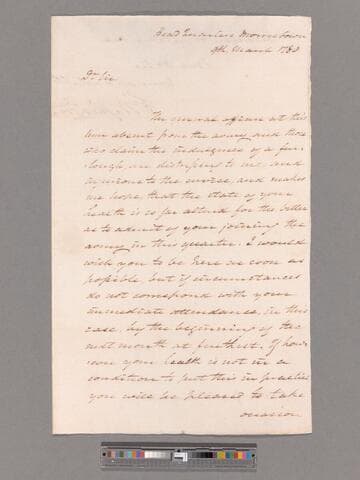 Head Quarters Morristown
9th March 1780
Dr Sir
The general officers at this
time absent from the army, and those
who claim the indulgence of a fur-
lough, are distressing to me, and
injurious to the service, and makes
me hope, that the state of your
health is so far altered for the better
as to admit of your joining the
army in this quarter. I would
wish you to be here as soon as
possible, but if circumstances
do not correspond with your
immediate attendance, in this
case, by the beginning of the
next month at furthest. If how-
ever your health is not in a
condition to put this in practice
you will be pleased to take
occasion